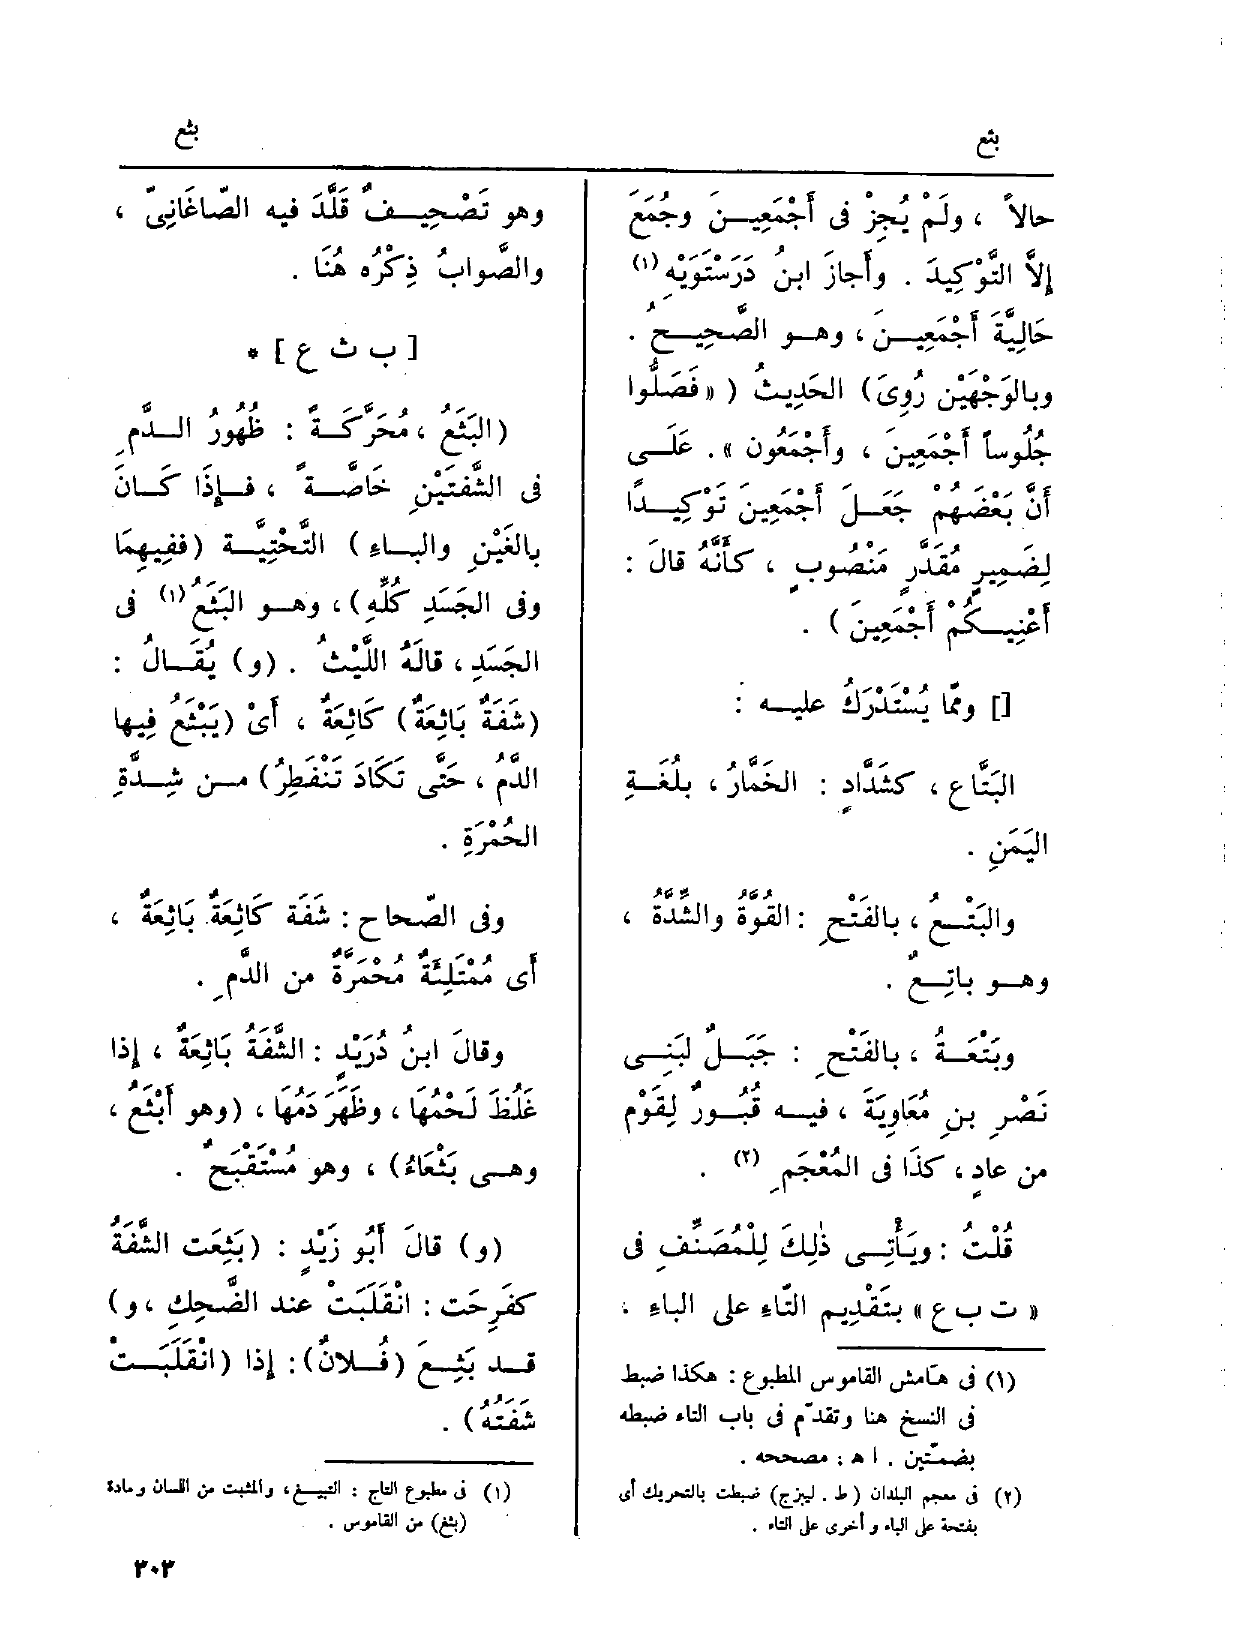 بثع
بثع
حالاً ، ولَمْ يُجِزْ فى أَجْمَعِيـنَ وجُمَعَ
إِلاَّ التَّوْكِيدَ . وأَجازَ ابنُ دَرَسْتَوَيْهِ (١)
حَالِيَّةَ أَجْمَعِيـنَ ، وهـو الصَّحِيـحُ .
وبالوَجْهَيْنِ رُوِىَ) الحَدِيثُ ( « فَصَلُّوا
جُلُوساً أَجْمَعِينَ ، وأَجْمَعُون » . عَلَـى
أَنَّ بَعْضَهُمْ جَعَـلَ أَجْمَعِينَ تَوْكِيـدًا
لِضَمِيرٍ مُقَدَّرٍ مَنْصُوبٍ ، كأَنَّهُ قالَ :
أَعْنِيـكُمْ أَجْمَعِينَ ) .
[] وممّا يُسْتَدْرَكُ عليـه :
البَتَّاع ، كشَدَّادٍ : الخَمَّارُ ، بلُغَـةِ
اليَمَنِ .
والبَتْـعُ ، بالفَتْحِ : القُوَّةُ والشِّدَّةُ ،
وهـو باتِـعٌ .
وبَتْعَـةُ ، بالفَتْحِ : جَبَـلٌ لبَنِـى
نَصْرِ بنِ مُعَاوِيَةَ ، فيـه قُبُـورٌ لِقَوْمٍ
من عادٍ ، كذَا فى المُعْجَمِ (٢) .
قُلْتُ : ويَأْتِـى ذٰلِكَ لِلْمُصَنِّفِ فى
« ت ب ع » بتَقْدِيمِ التّاءِ على الباءِ ،
(١) فى هامش القاموس المطبوع : هكذا ضبط
فى النسخ هنا وتقدّم فى باب التاء ضبطه
بضمّتين . ا ﻫ : مصححه .
(٢) فى معجم البلدان (ط . ليبزج) ضبطت بالتحريك أى
بفتحة على الباء و أخرى على التاء .
وهو تَصْحِيـفٌ قَلَّدَ فيه الصّاغَانِىّ ،
والصَّوابُ ذِكْرُه هُنَا .
[ ب ث ع ] *
(البَثَعُ ، مُحَرَّكَـةً : ظُهُورُ الـدَّمِ
فى الشَّفَتَيْنِ خَاصَّـةً ، فـإِذَا كَـانَ
بالغَيْنِ والبـاءِ ) التَّحْتِيَّـة (ففِيهِمَا
وفى الجَسَدِ كُلِّهِ) ، وهـو البَثَعُ (١) فى
الجَسَدِ ، قالَهُ اللَّيْثُ . (و) يُقَـالُ :
(شَفَةٌ بَاثِعَةٌ) كاثِعَةٌ ، أَىْ (يَبْثَعُ فِيها
الدَّمُ ، حَتَّى تَكَادَ تَنْفَطِرُ) مـن شِـدَّةِ
الحُمْرَةِ .
وفى الصّحاح : شَفَة كَاثِعَةٌ بَاثِعَةٌ ،
أَى مُمْتَلِئَةٌ مُحْمَرَّةٌ من الدَّمِ .
وقالَ ابنُ دُرَيْدٍ : الشَّفَةُ بَاثِعَةٌ ، إذا
غَلُظَ لَحْمُهَا ، وظَهَرَ دَمُهَا ، (وهو أَبْثَعُ ،
وهـى بَثْعَاءُ) ، وهو مُسْتَقْبَحٌ .
(و) قالَ أَبُو زَيْدٍ : (بَثِعَت الشَّفَةُ
كفَرِحَت : انْقَلَبَتْ عند الضَّحِكِ ، و)
قـد بَثِـعَ (فُـلانٌ) : إذا (انْقَلَبَـتْ
شَفَتُهُ) .
(١) فى مطبوع التاج : التبييغ ، والمثبت من اللسان ومادة
(بثغ) من القاموس .
٣٠٣